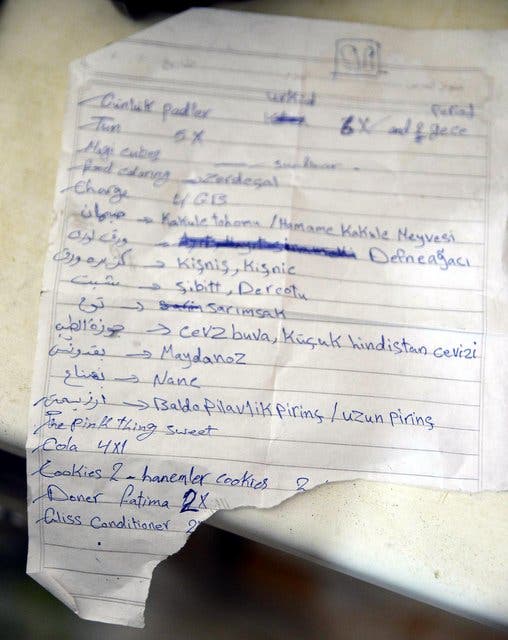 Günluk padler urkid 6X and 2 gece
Tun 5X
Magi cubes
food coloring → zerdeçal
Charge 4 GB
→ Kakule tohomu / Hamame Kakule Meyvesi
ورق لورى → Defneağacı
كزبره ورق → Kişniş, Kişnic
شبت → Şibitt, Dercotu
توم → sarımsak
جوزة الطيب → cevz buva, Küçuk hindistan cevizi
بقدونس → Maydanoz
نعناع → Nane
→ Baldo pilavlik pirinç / uzun pirinç
The pink thing sweet
Cola 4X1
Cookies 2 - hanemler cookies 2
Doner fatima 2X
Gliss Conditioner 2